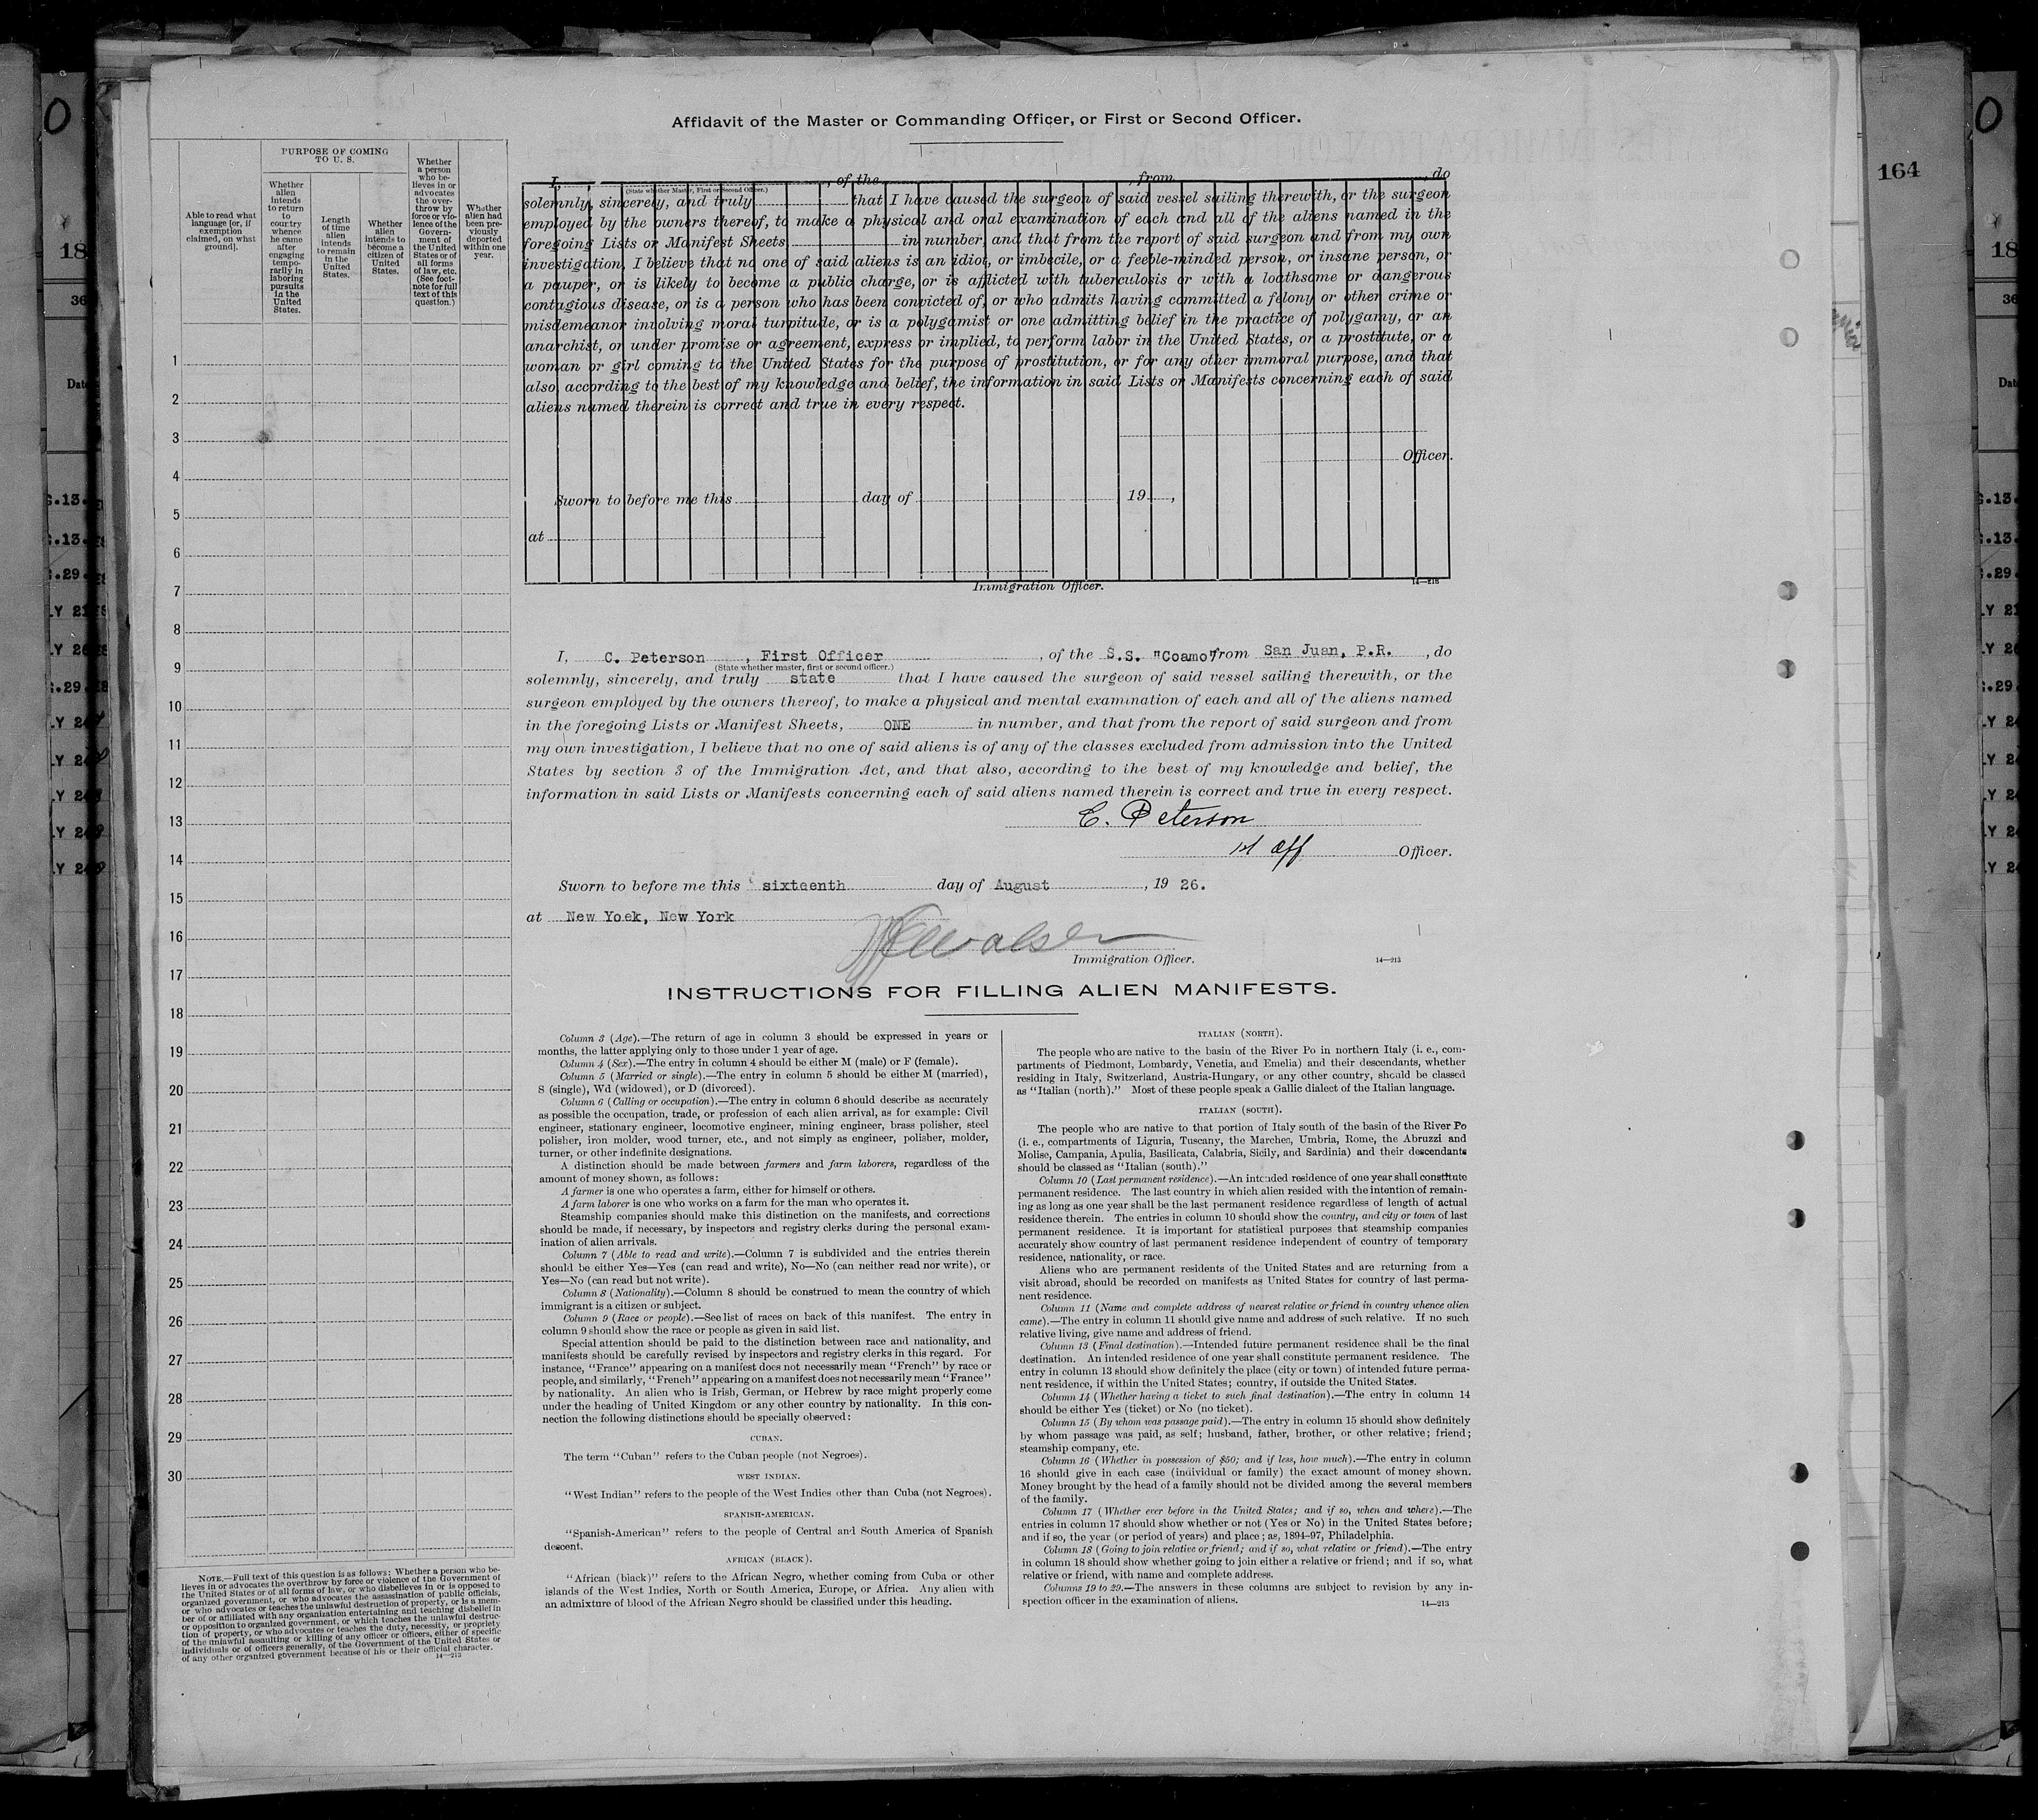 Affidavit of the Master or Commanding Officer, or First or Second Officer.
164
PURPOSE OF COMING
TO U. S.
Able to read what
language [or, if
exemption
claimed, on what
ground].
Whether
alien
intends
to return
to
country
whence
he came
after
engaging
tempo-
rarily in
laboring
pursuits
in the
United
States.
Length
of time
alien
intends
to remain
in the
United
States.
Whether
alien
intends to
become a
citizen of
United
States.
Whether
a person
who be-
lieves in or
advocates
the over-
throw by
force or vio-
lence of the
Govern-
ment of
the United
States or of
all forms
of law, etc.
(See foot-
note for full
text of this
question.)
Whether
alien had
been pre-
viously
deported
within one
year.
1
2
3
4
5
6
7
8
9
10
11
12
13
14
15
16
17
18
19
20
21
22
23
24
25
26
27
28
29
30
NOTE.—Full text of this question is as follows: Whether a person who be-
lieves in or advocates the overthrow by force or violence of the Government of
the United States or of all forms of law, or who disbelieves in or is opposed to
organized government, or who advocates the assassination of public officials,
or who advocates or teaches the unlawful destruction of property, or is a mem-
ber of or affiliated with any organization entertaining and teaching disbelief in
or opposition to organized government, or which teaches the unlawful destruc-
tion of property, or who advocates or teaches the duty, necessity, or propriety
of the unlawful assaulting or killing of any officer or officers, either of specific
individuals or of officers generally, of the Government of the United States or
of any other organized government because of his or their official character.
14—213
I, , of the , from , do
(State whether Master, First or Second Officer.)
solemnly, sincerely, and truly that I have caused the surgeon of said vessel sailing therewith, or the surgeon
employed by the owners thereof, to make a physical and oral examination of each and all of the aliens named in the
foregoing Lists or Manifest Sheets, in number, and that from the report of said surgeon and from my own
investigation, I believe that no one of said aliens is an idiot, or imbecile, or a feeble-minded person, or insane person, or
a pauper, or is likely to become a public charge, or is afflicted with tuberculosis or with a loathsome or dangerous
contagious disease, or is a person who has been convicted of, or who admits having committed a felony or other crime or
misdemeanor involving moral turpitude, or is a polygamist or one admitting belief in the practice of polygamy, or an
anarchist, or under promise or agreement, express or implied, to perform labor in the United States, or a prostitute, or a
woman or girl coming to the United States for the purpose of prostitution, or for any other immoral purpose, and that
also, according to the best of my knowledge and belief, the information in said Lists or Manifests concerning each of said
aliens named therein is correct and true in every respect.
Officer.
Sworn to before me this day of , 19 ,
at
Immigration Officer.
14—213
I, C. Peterson , First Officer , of the S.S. "Coamo" from San Juan, P.R. , do
(State whether master, first or second officer.)
solemnly, sincerely, and truly state that I have caused the surgeon of said vessel sailing therewith, or the
surgeon employed by the owners thereof, to make a physical and mental examination of each and all of the aliens named
in the foregoing Lists or Manifest Sheets, ONE in number, and that from the report of said surgeon and from
my own investigation, I believe that no one of said aliens is of any of the classes excluded from admission into the United
States by section 3 of the Immigration Act, and that also, according to the best of my knowledge and belief, the
information in said Lists or Manifests concerning each of said aliens named therein is correct and true in every respect.
C. Peterson
1st Off Officer.
Sworn to before me this sixteenth day of August , 19 26.
at New Yoek, New York
Immigration Officer.
14—213
INSTRUCTIONS FOR FILLING ALIEN MANIFESTS.
Column 3 (Age).—The return of age in column 3 should be expressed in years or
months, the latter applying only to those under 1 year of age.
Column 4 (Sex).—The entry in column 4 should be either M (male) or F (female).
Column 5 (Married or single).—The entry in column 5 should be either M (married),
S (single), Wd (widowed), or D (divorced).
Column 6 (Calling or occupation).—The entry in column 6 should describe as accurately
as possible the occupation, trade, or profession of each alien arrival, as for example: Civil
engineer, stationary engineer, locomotive engineer, mining engineer, brass polisher, steel
polisher, iron molder, wood turner, etc., and not simply as engineer, polisher, molder,
turner, or other indefinite designations.
A distinction should be made between farmers and farm laborers, regardless of the
amount of money shown, as follows:
A farmer is one who operates a farm, either for himself or others.
A farm laborer is one who works on a farm for the man who operates it.
Steamship companies should make this distinction on the manifests, and corrections
should be made, if necessary, by inspectors and registry clerks during the personal exam-
ination of alien arrivals.
Column 7 (Able to read and write).—Column 7 is subdivided and the entries therein
should be either Yes—Yes (can read and write), No—No (can neither read nor write), or
Yes—No (can read but not write).
Column 8 (Nationality).—Column 8 should be construed to mean the country of which
immigrant is a citizen or subject.
Column 9 (Race or people).—See list of races on back of this manifest. The entry in
column 9 should show the race or people as given in said list.
Special attention should be paid to the distinction between race and nationality, and
manifests should be carefully revised by inspectors and registry clerks in this regard. For
instance, "France" appearing on a manifest does not necessarily mean "French" by race or
people, and similarly, "French" appearing on a manifest does not necessarily mean "France"
by nationality. An alien who is Irish, German, or Hebrew by race might properly come
under the heading of United Kingdom or any other country by nationality. In this con-
nection the following distinctions should be specially observed:
CUBAN.
The term "Cuban" refers to the Cuban people (not Negroes).
WEST INDIAN.
"West Indian" refers to the people of the West Indies other than Cuba (not Negroes).
SPANISH-AMERICAN.
"Spanish-American" refers to the people of Central and South America of Spanish
descent.
AFRICAN (BLACK).
"African (black)" refers to the African Negro, whether coming from Cuba or other
islands of the West Indies, North or South America, Europe, or Africa. Any alien with
an admixture of blood of the African Negro should be classified under this heading.
ITALIAN (NORTH).
The people who are native to the basin of the River Po in northern Italy (i. e., com-
partments of Piedmont, Lombardy, Venetia, and Emelia) and their descendants, whether
residing in Italy, Switzerland, Austria-Hungary, or any other country, should be classed
as "Italian (north)." Most of these people speak a Gallic dialect of the Italian language.
ITALIAN (SOUTH).
The people who are native to that portion of Italy south of the basin of the River Po
(i. e., compartments of Liguria, Tuscany, the Marches, Umbria, Rome, the Abruzzi and
Molise, Campania, Apulia, Basilicata, Calabria, Sicily, and Sardinia) and their descendants
should be classed as "Italian (south)."
Column 10 (Last permanent residence).—An intended residence of one year shall constitute
permanent residence. The last country in which alien resided with the intention of remain-
ing as long as one year shall be the last permanent residence regardless of length of actual
residence therein. The entries in column 10 should show the country, and city or town of last
permanent residence. It is important for statistical purposes that steamship companies
accurately show country of last permanent residence independent of country of temporary
residence, nationality, or race.
Aliens who are permanent residents of the United States and are returning from a
visit abroad, should be recorded on manifests as United States for country of last perma-
nent residence.
Column 11 (Name and complete address of nearest relative or friend in country whence alien
came).—The entry in column 11 should give name and address of such relative. If no such
relative living, give name and address of friend.
Column 13 (Final destination).—Intended future permanent residence shall be the final
destination. An intended residence of one year shall constitute permanent residence. The
entry in column 13 should show definitely the place (city or town) of intended future perma-
nent residence, if within the United States; country, if outside the United States.
Column 14 (Whether having a ticket to such final destination).—The entry in column 14
should be either Yes (ticket) or No (no ticket).
Column 15 (By whom was passage paid).—The entry in column 15 should show definitely
by whom passage was paid, as self; husband, father, brother, or other relative; friend;
steamship company, etc.
Column 16 (Whether in possession of $50; and if less, how much).—The entry in column
16 should give in each case (individual or family) the exact amount of money shown.
Money brought by the head of a family should not be divided among the several members
of the family.
Column 17 (Whether ever before in the United States; and if so, when and where).—The
entries in column 17 should show whether or not (Yes or No) in the United States before;
and if so, the year (or period of years) and place; as, 1894-97, Philadelphia.
Column 18 (Going to join relative or friend; and if so, what relative or friend).—The entry
in column 18 should show whether going to join either a relative or friend; and if so, what
relative or friend, with name and complete address.
Columns 19 to 29.—The answers in these columns are subject to revision by any in-
spection officer in the examination of aliens.
14—213